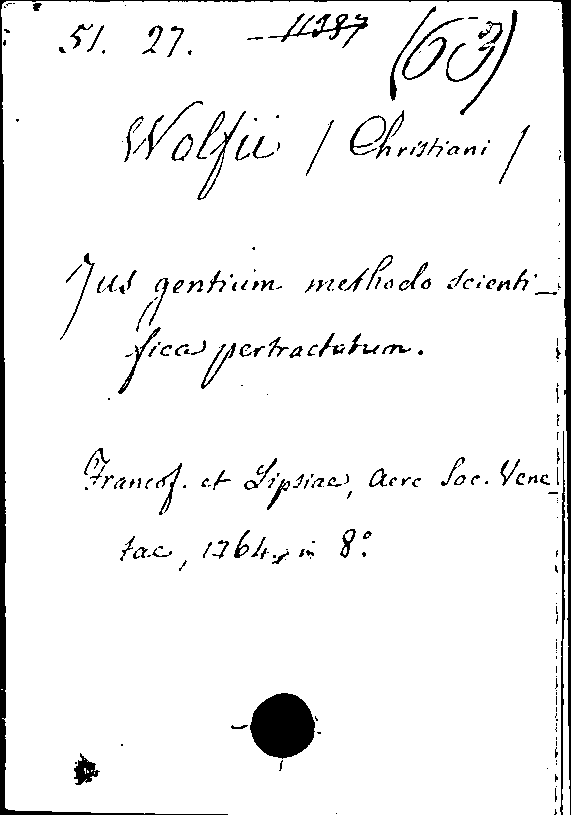 51. 27. 11387 (63)
Wolfii / Christiani /
Jus gentium methodo scienti-
fica pertractatum.
Francof. et Lipsiae, aere Soc. Vene-
tae, 1764, in 8°